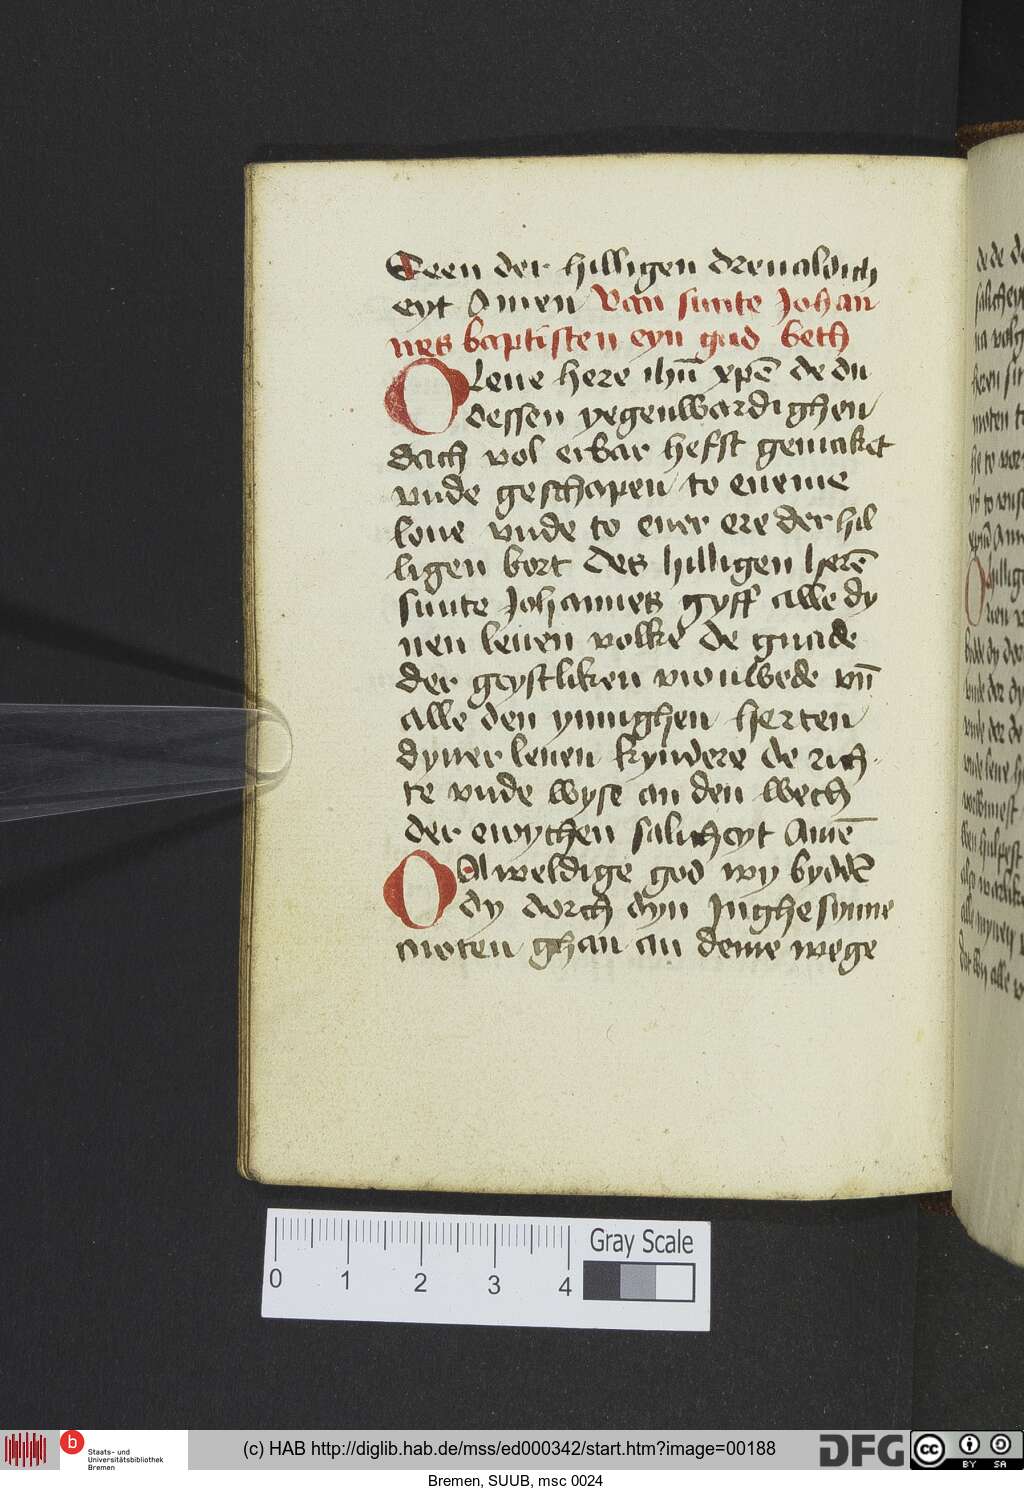 Teen der hilligen dreualdich
eyt Amen Van sunte Johan
nes baptisten eyn gud beth
O Leue here ihū xpē de du
dessen yegenwardighen
dach vol erbar hefst gemaket
vnde geschapen to eneme
loue vnde to ener ere der hil
ligen bort des hilligen herē
sunte Johannes gyff alle dy
nen leuen volke de gnade
der geystliken vrouwede vn̄
alle den ynnighen herten
dyner leuen kyndere de rich-
te vnde wyse an den wech
der ewychen salicheyt Amē
O Alweldige god wy byddē
dy dorch dyn Inghesynne
moten ghan an deme wege
0 1 2 3 4
Gray Scale
b Staats- und
Universitätsbibliothek
Bremen
(c) HAB http://diglib.hab.de/mss/ed000342/start.htm?image=00188
DFG
cc BY SA
Bremen, SUUB, msc 0024